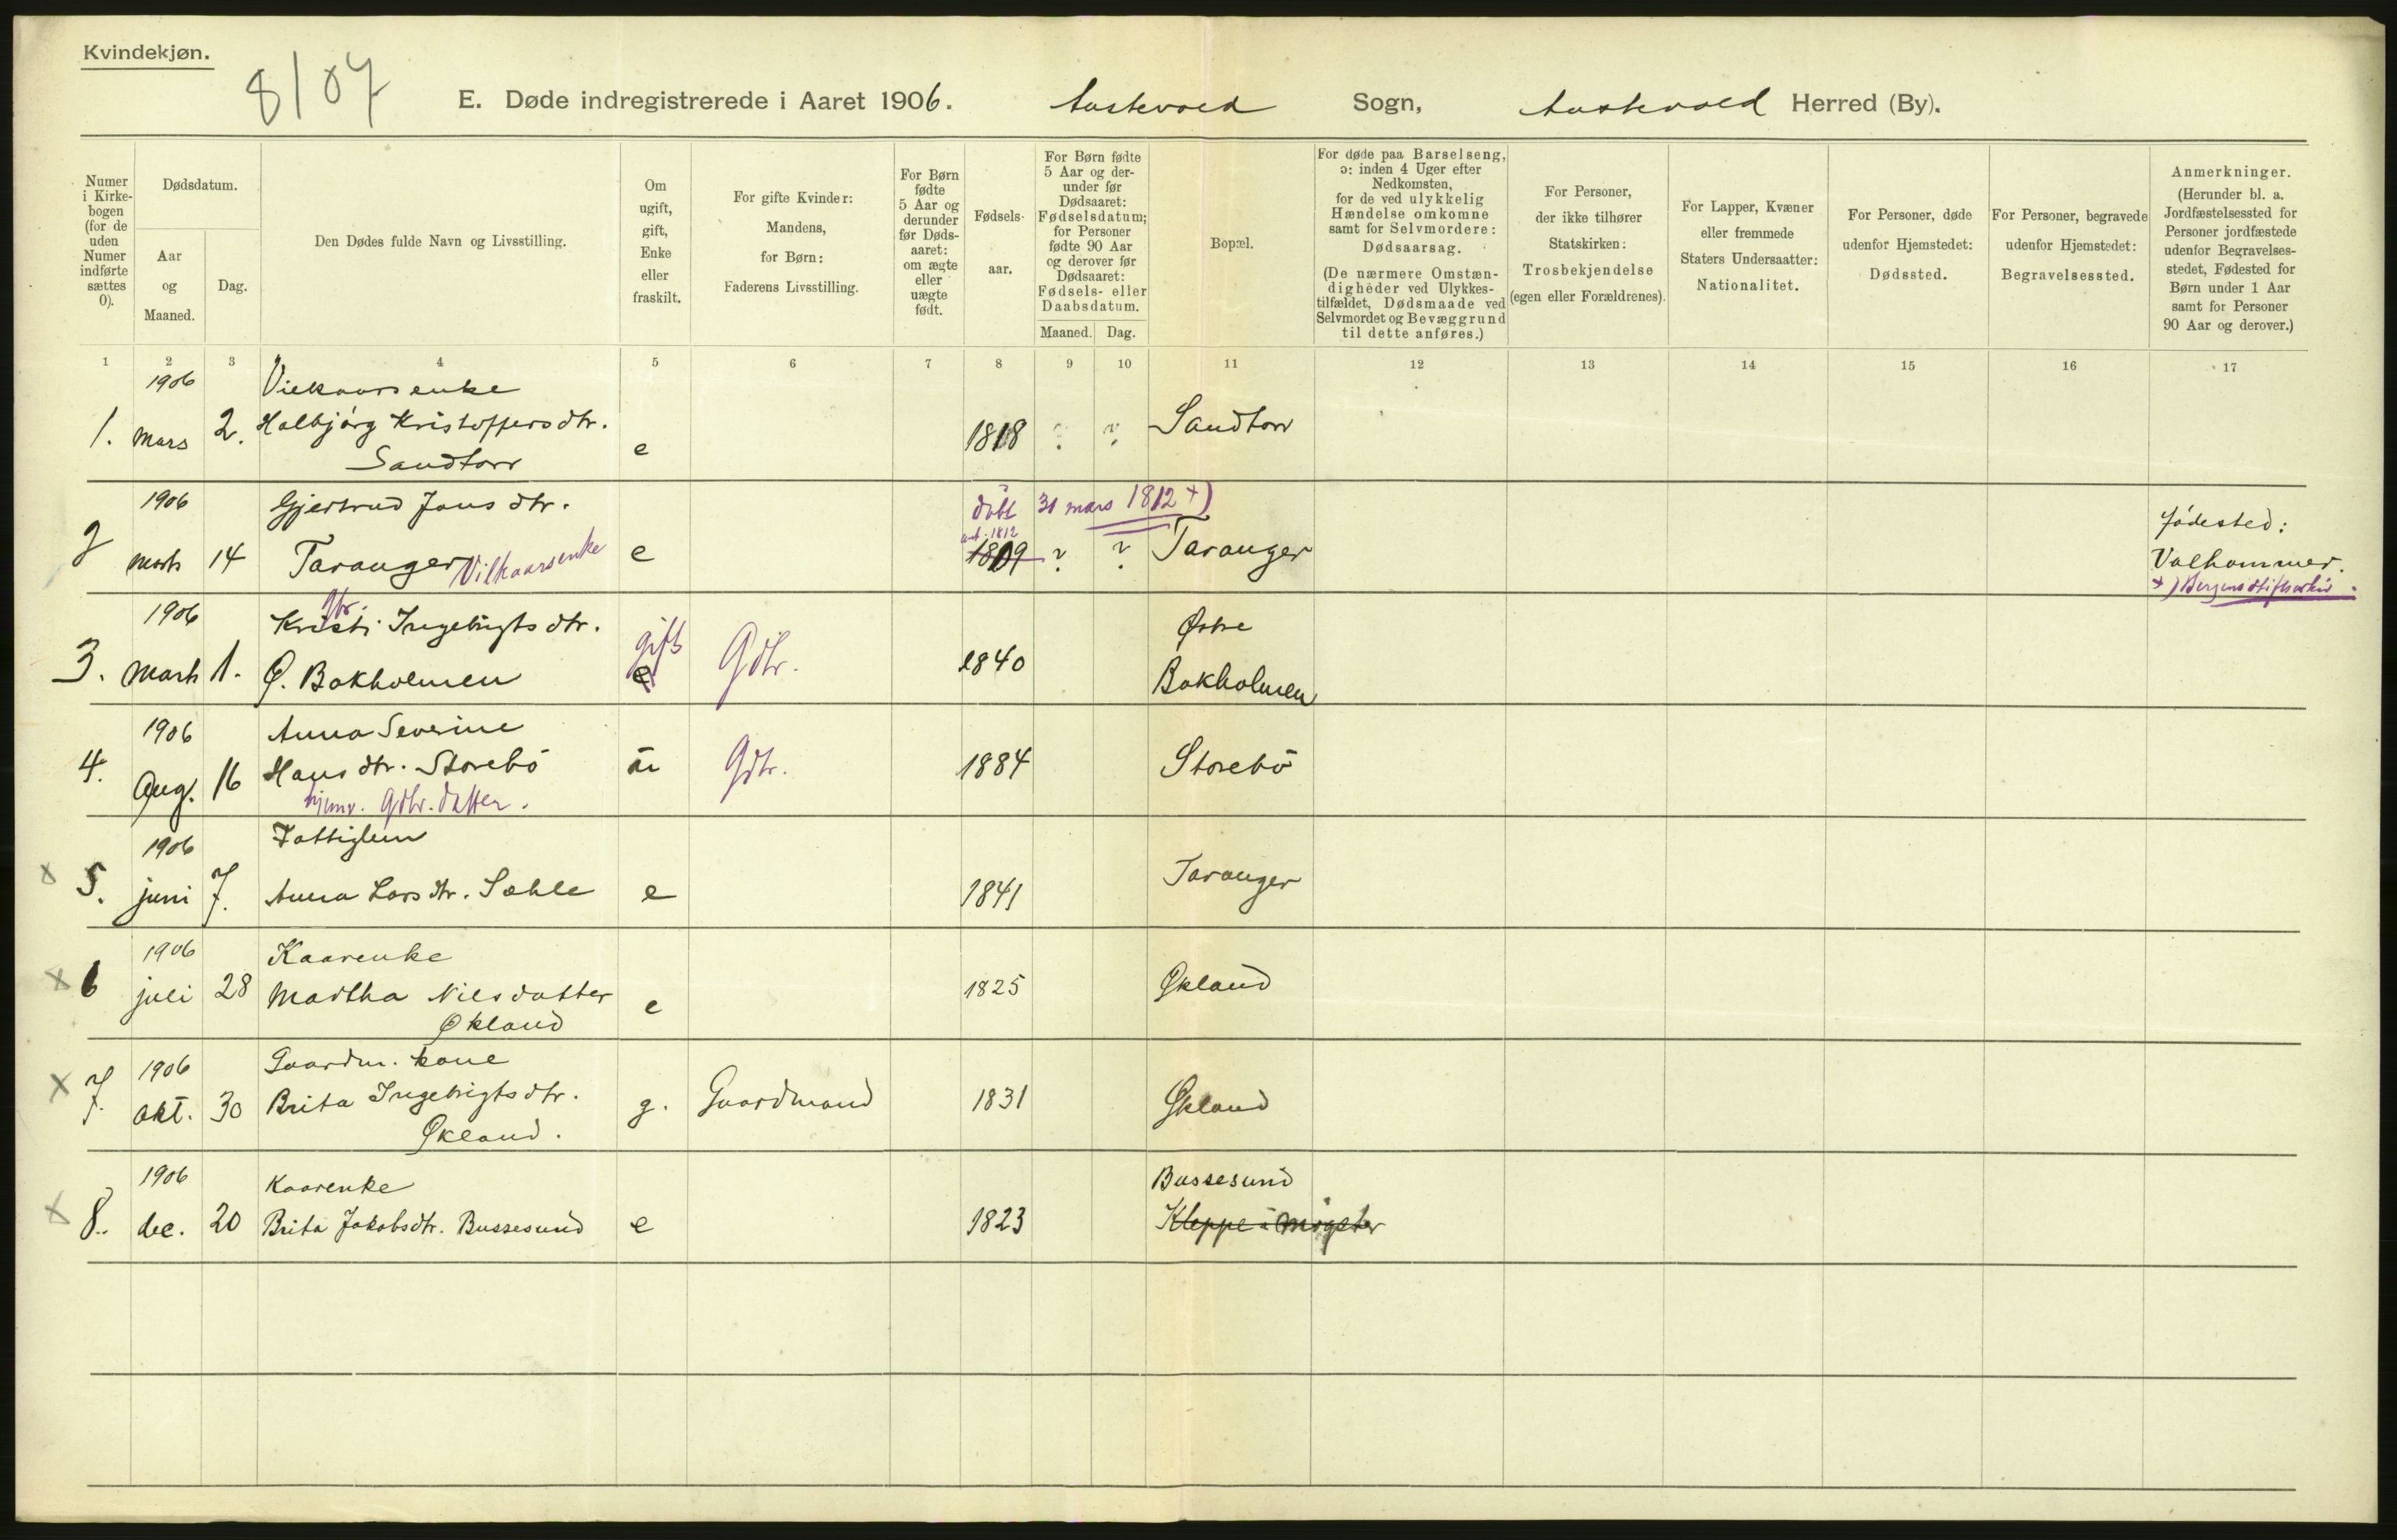 Kvindekjøn.
8/07
E. Døde indregistrerede i Aaret 1906. Austevold Sogn, Austevold Herred (By).
Numer i Kirkebogen (for de uden Numer indførte sættes 0).
Dødsdatum.
Aar og Maaned.
Dag.
Den Dødes fulde Navn og Livsstilling.
Om ugift, gift, Enke eller fraskilt.
For gifte Kvinder: Mandens, for Børn: Faderens Livsstilling.
For Børn fødte 5 Aar og derunder før Dødsaaret: om ægte eller uægte født.
Fødselsaar.
For Børn fødte 5 Aar og derunder før Dødsaaret: Fødselsdatum; for Personer fødte 90 Aar og derover før Dødsaaret: Fødsels- eller Daabsdatum.
Maaned. Dag.
Bopæl.
For døde paa Barselseng, ɔ: inden 4 Uger efter Nedkomsten, for de ved ulykkelig Hændelse omkomne samt for Selvmordere: Dødsaarsag.
(De nærmere Omstændigheder ved Ulykkestilfældet, Dødsmaade ved Selvmordet og Bevæggrund til dette anføres.)
For Personer, der ikke tilhører Statskirken: Trosbekjendelse (egen eller Forældrenes).
For Lapper, Kvæner eller fremmede Staters Undersaatter: Nationalitet.
For Personer, døde udenfor Hjemstedet: Dødssted.
For Personer, begravede udenfor Hjemstedet: Begravelsessted.
Anmerkninger.
(Herunder bl. a. Jordfæstelsessted for Personer jordfæstede udenfor Begravelsesstedet, Fødested for Børn under 1 Aar samt for Personer 90 Aar og derover.)
1 2 3 4 5 6 7 8 9 10 11 12 13 14 15 16 17
1906 Vilkaarsenke
1. Mars 2. Halbjørg Kristoffersdtr. e 1818 ? ? Sandtorv
Sandtorv
1906 Gjertrud Jons dtr. døbt 31 mars 1812 +) fødested:
ant. 1812
2 Marts 14 Taranger Vilkaarsenke e 1809 ? ? Taranger Valhammer.
+) Bergens stiftsarkiv.
1906 Kristi Ingebrigts dtr. gift Østre
gbr.
3. Marts 1. Ø. Bakholmen e Gdbr. 1840 Bakholmen
1906 Anna Severine
4. Aug. 16 Hans dtr. Storebö ü Gdbr. 1884 Storebö
hjemv. Gdbr. datter.
1906 Fattiglem
x 5. juni 7. Anna Lars dtr. Sæhle e 1841 Taranger
1906 Kaarenke
x 6 juli 28 Martha Nilsdatter e 1825 Økland
Økland
1906 Gaardm. kone
x 7. Okt. 30 Brita Ingebrigts dtr. g. Gaardmand 1831 Økland
Økland.
1906 Kaarenke Bussesund
x 8. dec. 20 Brita Jakobsdtr. Bussesund e 1823 Kleppe i Møgster